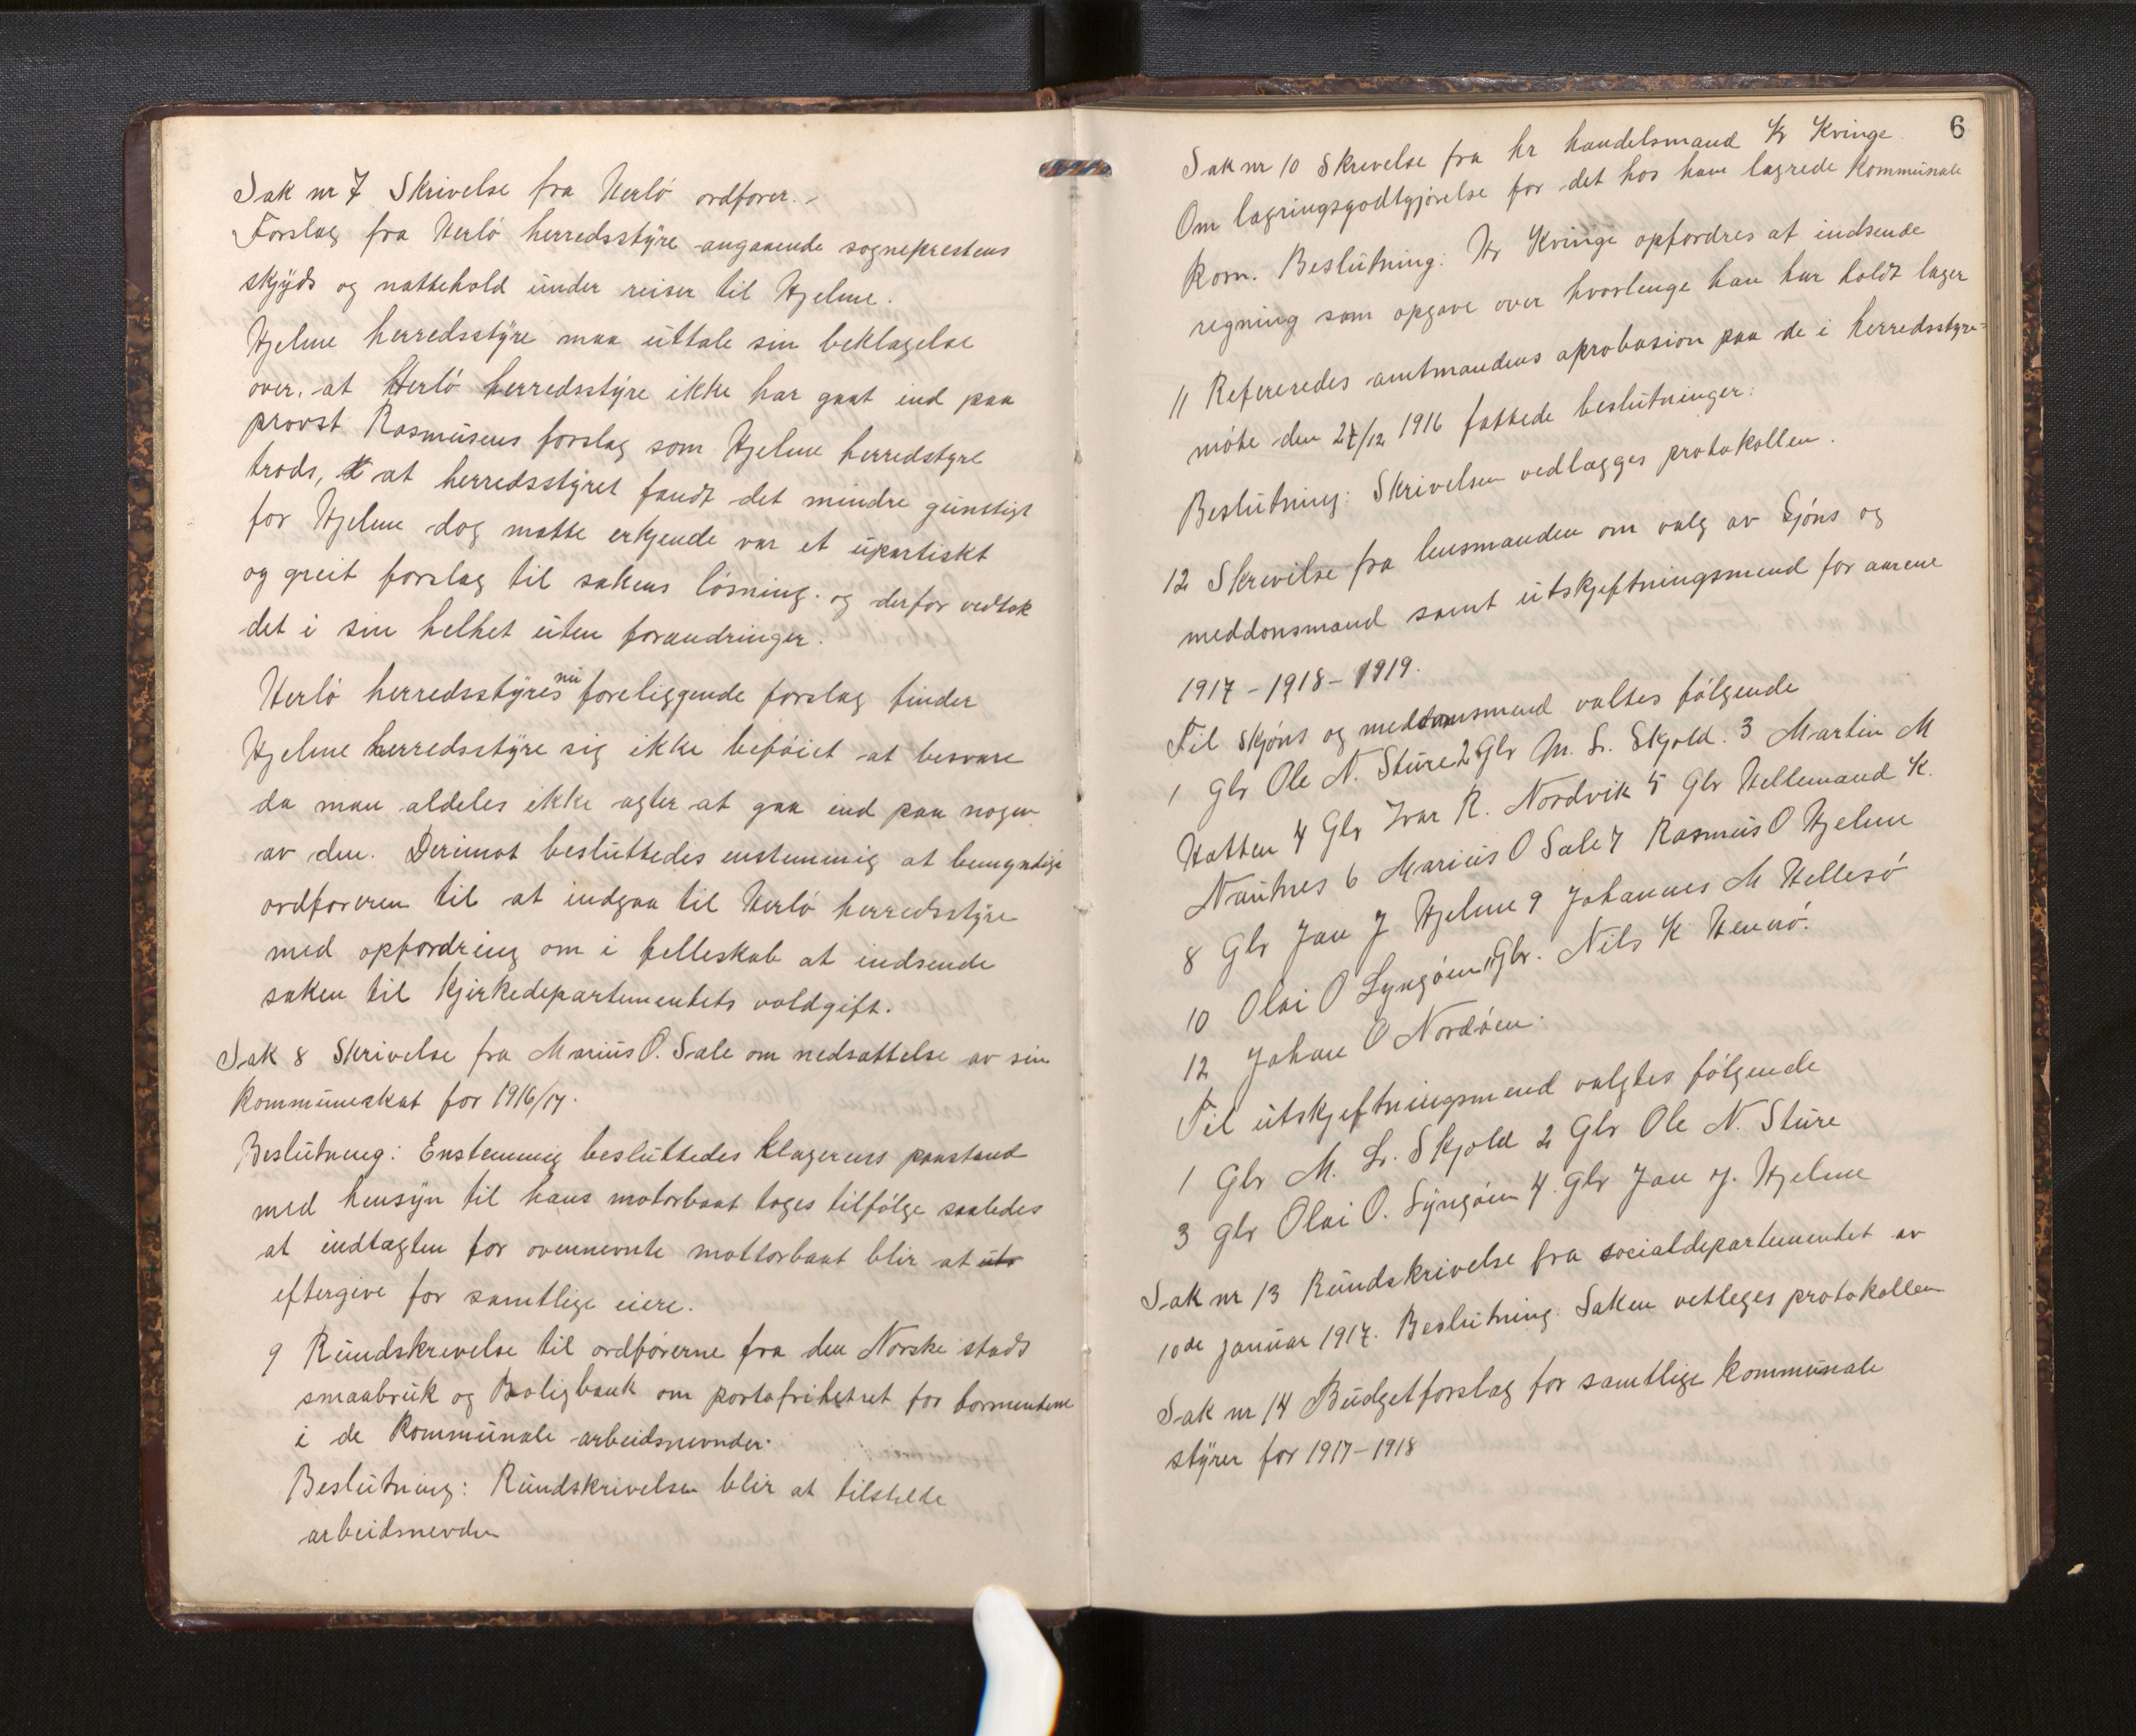 Sak nr 7 Skrivelse fra Herlö ordförer.-
Forslag fra Herlö herredsstyre angaaende sogneprestens
skyds og nattehold under reiser til Hjelme.
Hjelme herredsstyre maa uttale sin beklagelse
over at Herlö herredsstyre ikke har gaat ind paa
provst Rasmusens forslag som Hjelme herredstyre
trods, at herredsstyret fandt det mindre gunstigt
for Hjelme dog matte erkjende var et upartiskt
og greit forslag til sakens lösning. og derfor vedtok
det i sin helhet uten forandringer.
Herlö herredsstyres nu foreliggende forslag finder
Hjelme herredsstyre sig ikke beföiet at besvare
da man aldeles ikke agter at gaa ind paa nogen
av den. Derimot besluttedes enstemmig at bemyndige
ordföreren til at indgaa til Herlö herredsstyre
med opfordring om i felleskab at indsende
saken til Kjirkedepartementets voldgift.
Sak 8 Skrivelse fra Marius O. Sale om nedsattelse av sin
kommuneskat for 1916/17.
Beslutning: Enstemmig besluttedes klagerens paastand
med hensyn til hans motorbaat toges tilfölge saaledes
at indtægten for ovennevnte mottorbaat blir at uts
eftergive for samtlige eiere.
9 Rundskrevelse til ordförerne fra den Norske stads
smaabruk og Boligbank om portofrihetret for formendene
i de kommunale arbeidsnevnder.
Beslutning: Rundskrivelsen blir at tilstelde
arbeidsnevden
6
Sak nr 10 Skrevelse fra hr handelsmand K Kvinge
Om lagringsgodtgjörelse for det hos ham lagrede kommunale
korn. Beslutning: Hr Kvinge opfordres at indsende
regning som opgave over hvorlenge han har holdt lager
11 Refereredes amtmandens aprobasion paa de i herredsstyre-
möte den 27/12 1916 fattede beslutninger:
Beslutning: Skrivelsen vedlægges protokollen.
12 Skrevilse fra lensmanden om valg av Sjöns og
meddonsmænd samt utskjeftningsmend for aarene
1917-1918-1919.
Til Skjöns og meddomsmend valtes fölgende
1 Glr Ole N. Sture 2 Glr M. L. Skjold. 3 Martin M
Hatten 4 Glr Ivar R. Nordvik 5 Glr Hellemand K.
Nautnes 6 Marius O Sale 7 Rasmus O Hjelme
8 Glr Jan J Hjelme 9 Johannes M Hellesö
10 Olai O Lyngöien 11 Glr. Nils K Hennö.
12 Johan O Nordöen.
Til utskjeftningsmend valgtes fölgende
1 Glr M. L. Skjold 2 Glr Ole N. Sture
3 Glr Olai O. Lyngöien 4. Glr Jan J. Hjelme
Sak nr 13 Rundskrivelse fra socialdepartementet av
10de januar 1917. Beslutning. Saken vetleges protokollen
Sak nr 14 Budgetforslag for samtlige kommunale
styrer for 1917-1918